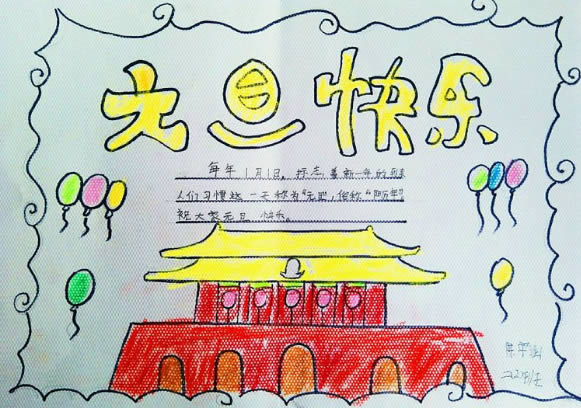 元旦快乐
每年1月1日，标志着新一年的到来
人们习惯这一天称为“元旦”，俗称“阳历年”
祝大家元旦快乐。